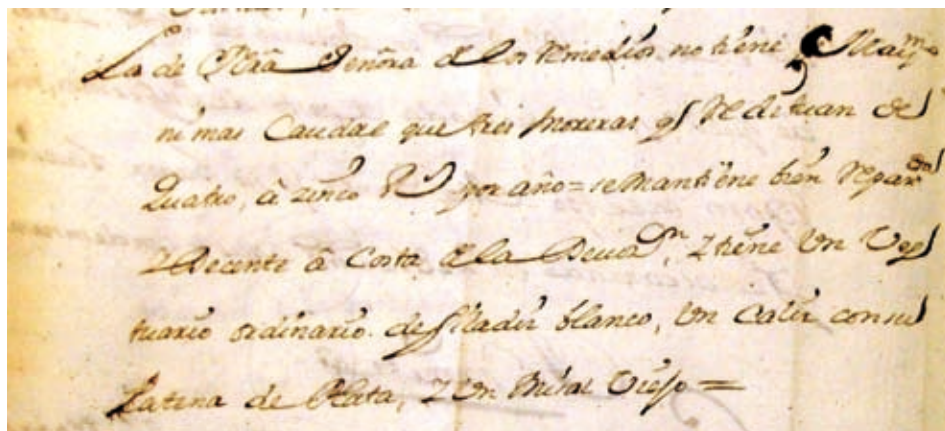 La de Nrã Señora de los Remedios no tiene Maiᵐᵒ
ni mas Caudal que tres moreras q̃ Redituan de
Quatro, à zinco Rˢ por año = se mantiene bien Reparᵈᵃ
Y Decente à Costa de la Devoᵒⁿ, Y tiene Un Ves
tuario ordinario. de blanco, Un Caliz con su
Patena de Plata, Y Un Misal Viejo =